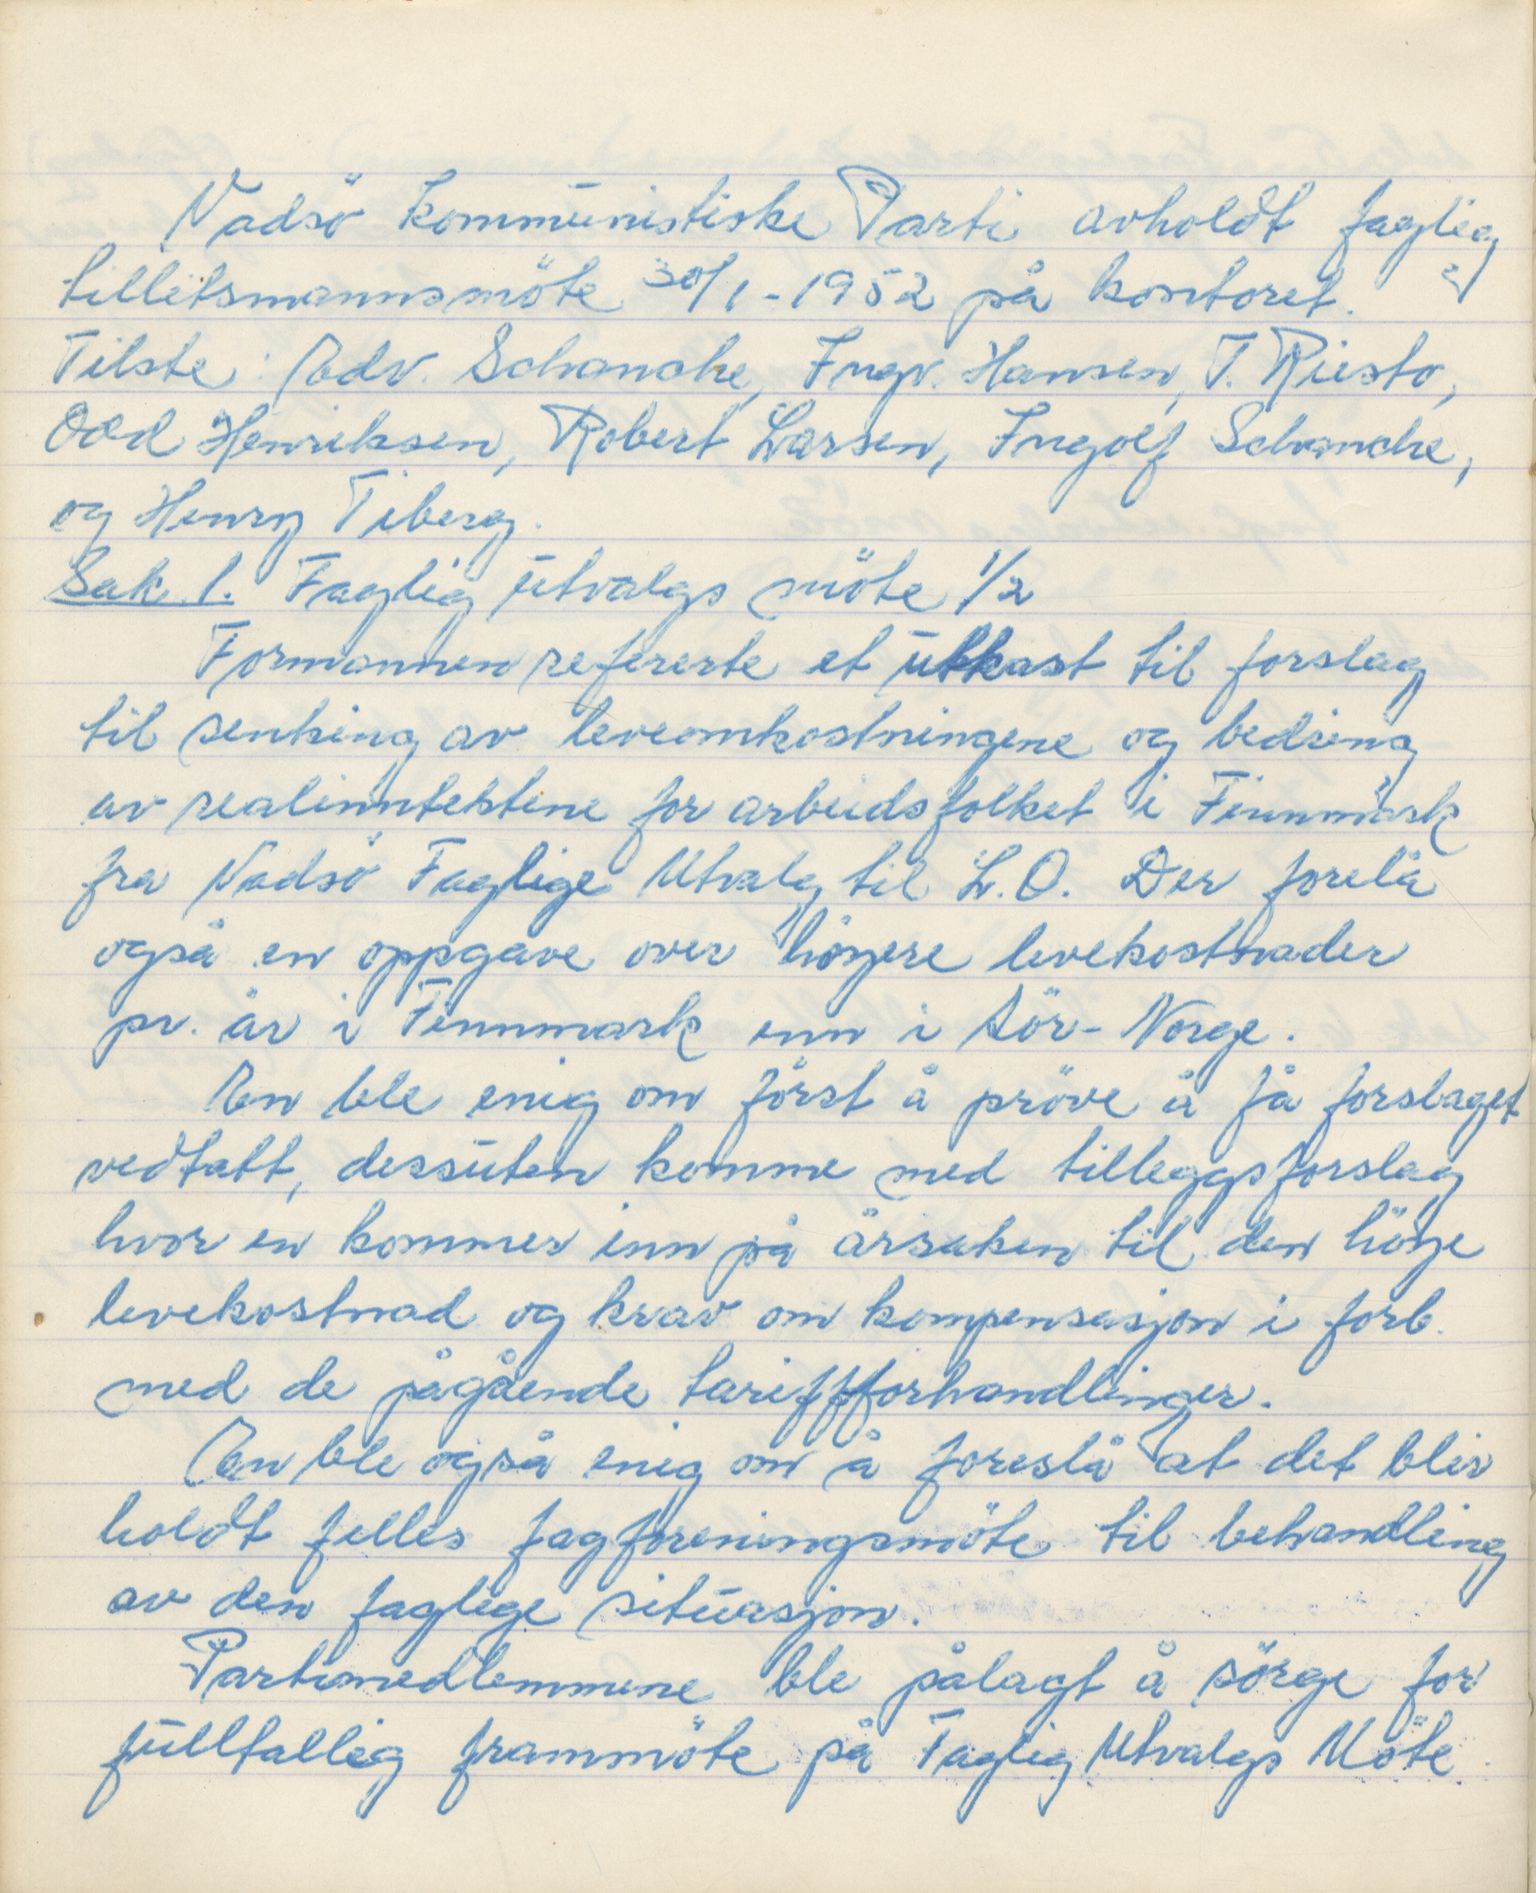 Vadsö Kommunistiske Parti avholdt faglig
tillitsmannsmöte 30/1-1952 på kontoret.
Tilste: Edv. Schanche, Ingv. Hansen, T. Riesto,
Odd Henriksen, Robert Larsen, Ingolf Schanche,
og Henry Tiberg.
Sak 1. Faglig utvalgs möte 1/2
Formannen refererte et utkast til forslag
til senking av leveomkostningene og bedring
av realinntektene for arbeidsfolket i Finnmark
fra Vadsö Faglige Utvalg til L.O. Der forelå
også en oppgave over höyere levekostnader
pr. år i Finnmark enn i Sör-Norge.
En ble enig om först å pröve å få forslaget
vedtatt, dessuten komme med tilleggsforslag
hvor en kommer inn på årsaken til den höye
levekostnad og krav om kompensasjon i forb.
med de pågående tariffforhandlinger.
En ble også enig om å foreslå at det blir
holdt felles fagforeningsmöte til behandling
av den faglige situasjon.
Partimedlemmene ble pålagt å sörge for
fulltallig frammöte på Faglig Utvalgs Möte.